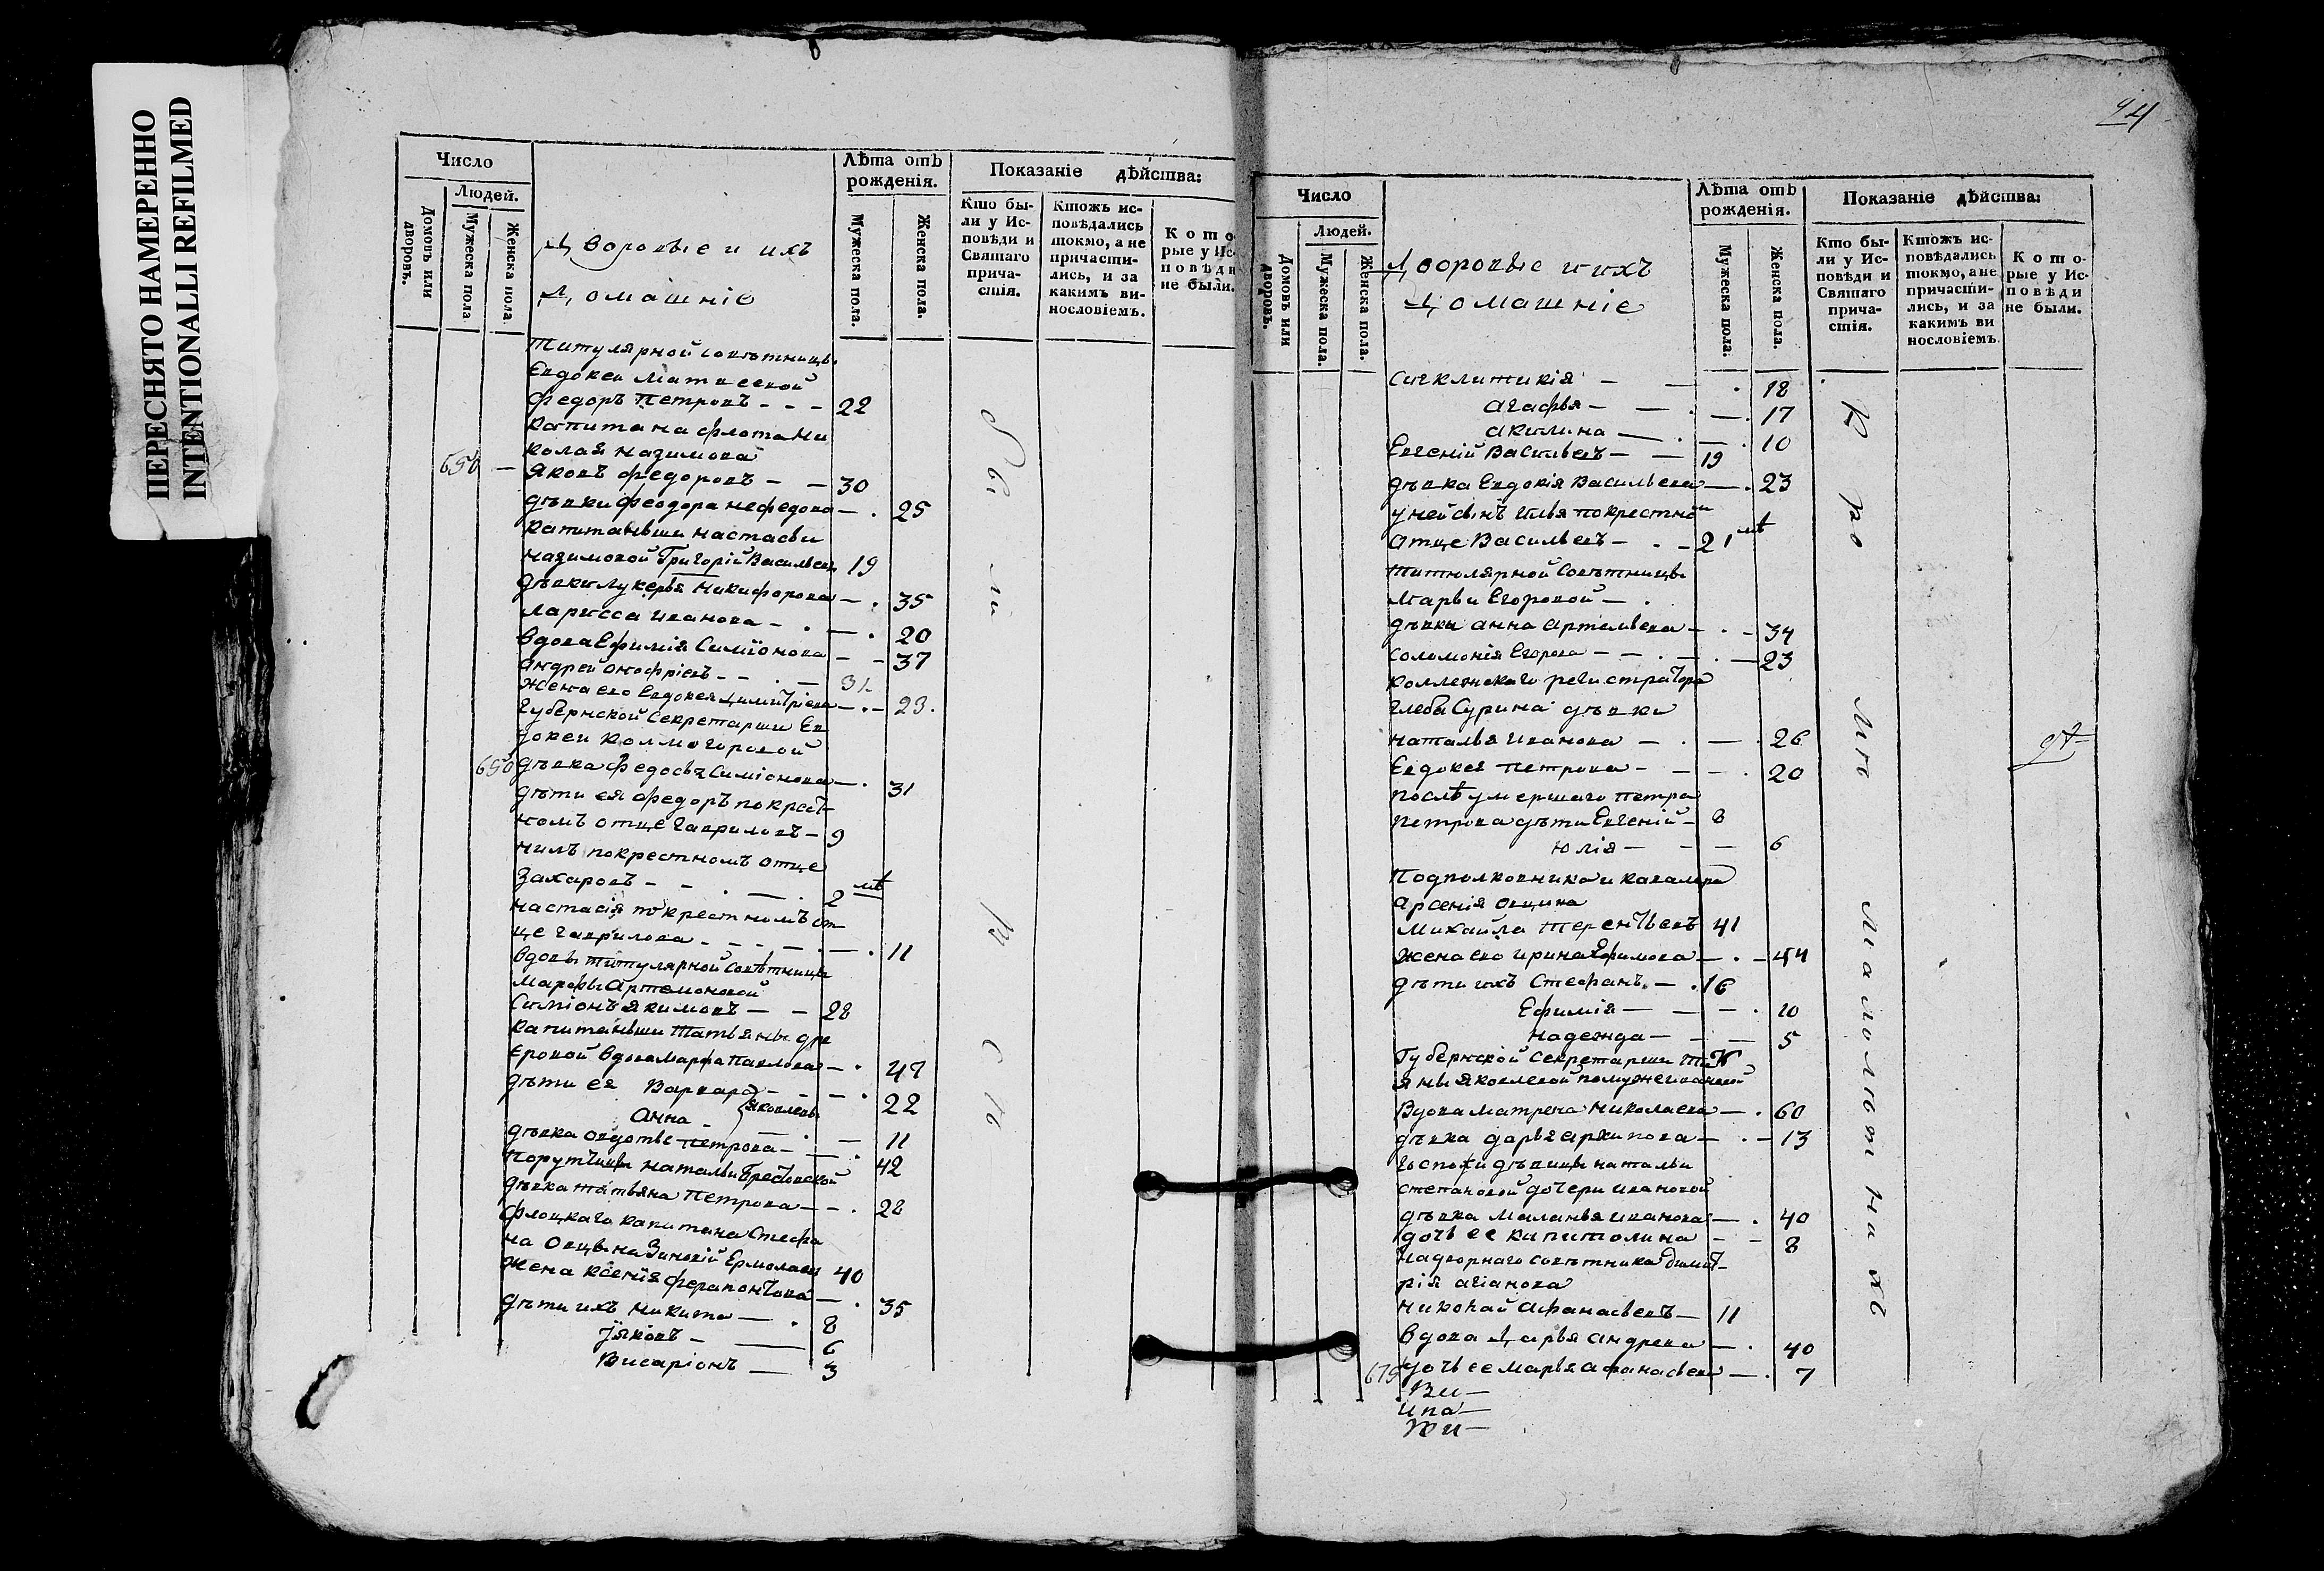 ПЕРЕСНЯТО НАМЕРЕННО
INTENTIONALLI REFILMED
Число
Людей.
Домовъ или дворовъ.
Мужеска пола.
Женска пола.
Дворовые и ихъ
Домашніе
Лѣта отъ рожденія.
Мужеска пола.
Женска пола.
Показаніе дѣйства:
Кто бы-
ли у Ис-
повѣди и
Святаго
прича-
стія.
Ктожъ ис-
повѣдались
токмо, а не
причасти-
лись, и за
какимъ ви-
нословіемъ.
Кото-
рые у Ис-
повѣди
не были.
Титулярной совѣтницы
Евдокеи Матвеевой
Федоръ Петровъ - - - 22
Капитана флота Ни
колая Назимова
Яковъ Федоровъ - - 30
дѣвки Феодора Нефедова - . 25
Капитанши Настасьи
Назимовой Григорій Васильевъ 19
дѣвки Лукерья Никифорова - . 35
Ларисса Иванова - . - . 20
вдова Ефимія Симіонова - - 37
Андрей Онофріевъ - - . - 31
жена его Евдокея Димитріева - . - 23.
Губернской Секретарши Ев
докеи Колмогоровой
650 дѣвка Федосья Симіонова - . 31
дѣти ея Федоръ по крест
номъ отце Гавриловъ - 9
Нилъ по крестномъ отце
Захаровъ - - . - . 2
Настасія по крестномъ от
це Гаврилова - - . - . - . 11
вдовы титулярной совѣтницы
Марфы Артемоновой
Симіонъ Якимовъ - - 28
Капитанши Татьяны
вдова Марфа Павлова - . 47
дѣти ея Варвара - - - . 22
Яковлевы
Анна - - . - 11
дѣвка Федотья Петрова - - . 42
Порутчицы Натальи
дѣвка Татьяна Петрова - - . 28
Флоцкаго капитана Стефа
на Овцына Зиновій Ермолаевъ 40
жена Ксенія Ферапонтова - . 35
дѣти ихъ Никита - . 8
Іяковъ - - 6
Висаріонъ - 3
Число
Людей.
Домовъ или дворовъ.
Мужеска пола.
Женска пола.
Дворовые и ихъ
Домашніе
Лѣта отъ рожденія.
Мужеска пола.
Женска пола.
Показаніе дѣйства:
Кто бы-
ли у Ис-
повѣди и
Святаго
прича-
стія.
Ктожъ ис-
повѣдались
токмо, а не
причасти-
лись, и за
какимъ ви
нословіемъ.
Кото-
рые у Ис-
повѣди
не были.
Сигклитикія - - . 18
Агафья - - . - . 17
Акилина - . - . 10
Евгеній Васильевъ - - 19
дѣвка Евдокія Васильева - . 23
у ней сынъ Илья по крестном
отце Васильевъ - . - 2
Титюлярной Совѣтницы
Марьи Егоровой - .
дѣвки Анна Артемьева - . - 34
Соломонія Егорова - - . - . - 23
Коллежскаго регистратора
Глеба Сурина дѣвки
Наталья Иванова - . - . 26
Евдокея Петрова - - - . 20
После умершаго Петра
Петрова дѣти Евгеній - 8
Юлія - - - 6
Подполковника и кавалера
Арсенія Овцина
Михайла Терентьевъ 41
жена его Ирина Ефимова - . - 44
дѣти ихъ Стефанъ. - . 16
Ефимія - - - . 10
Надежда - - - 5
Губернской Секретарши Тать
яны Яковлевой по муже Ивановой
Вдова Матрена Николаева - . 60
дѣвка Дарья Архипова - . - 13
Госпожи дѣвицы Натальи
Степановой дочери Ивановой
дѣвка Маланья Иванова - . 40
дочь ее Капитолина - - 8
Надворнаго совѣтника Димит
рія
Николай Афанасьевъ - 11
вдова Дарья Андреева - . 40
дочь ее Марья Афанасьева - . 7
Были
кро
мю
малолѣтнихъ